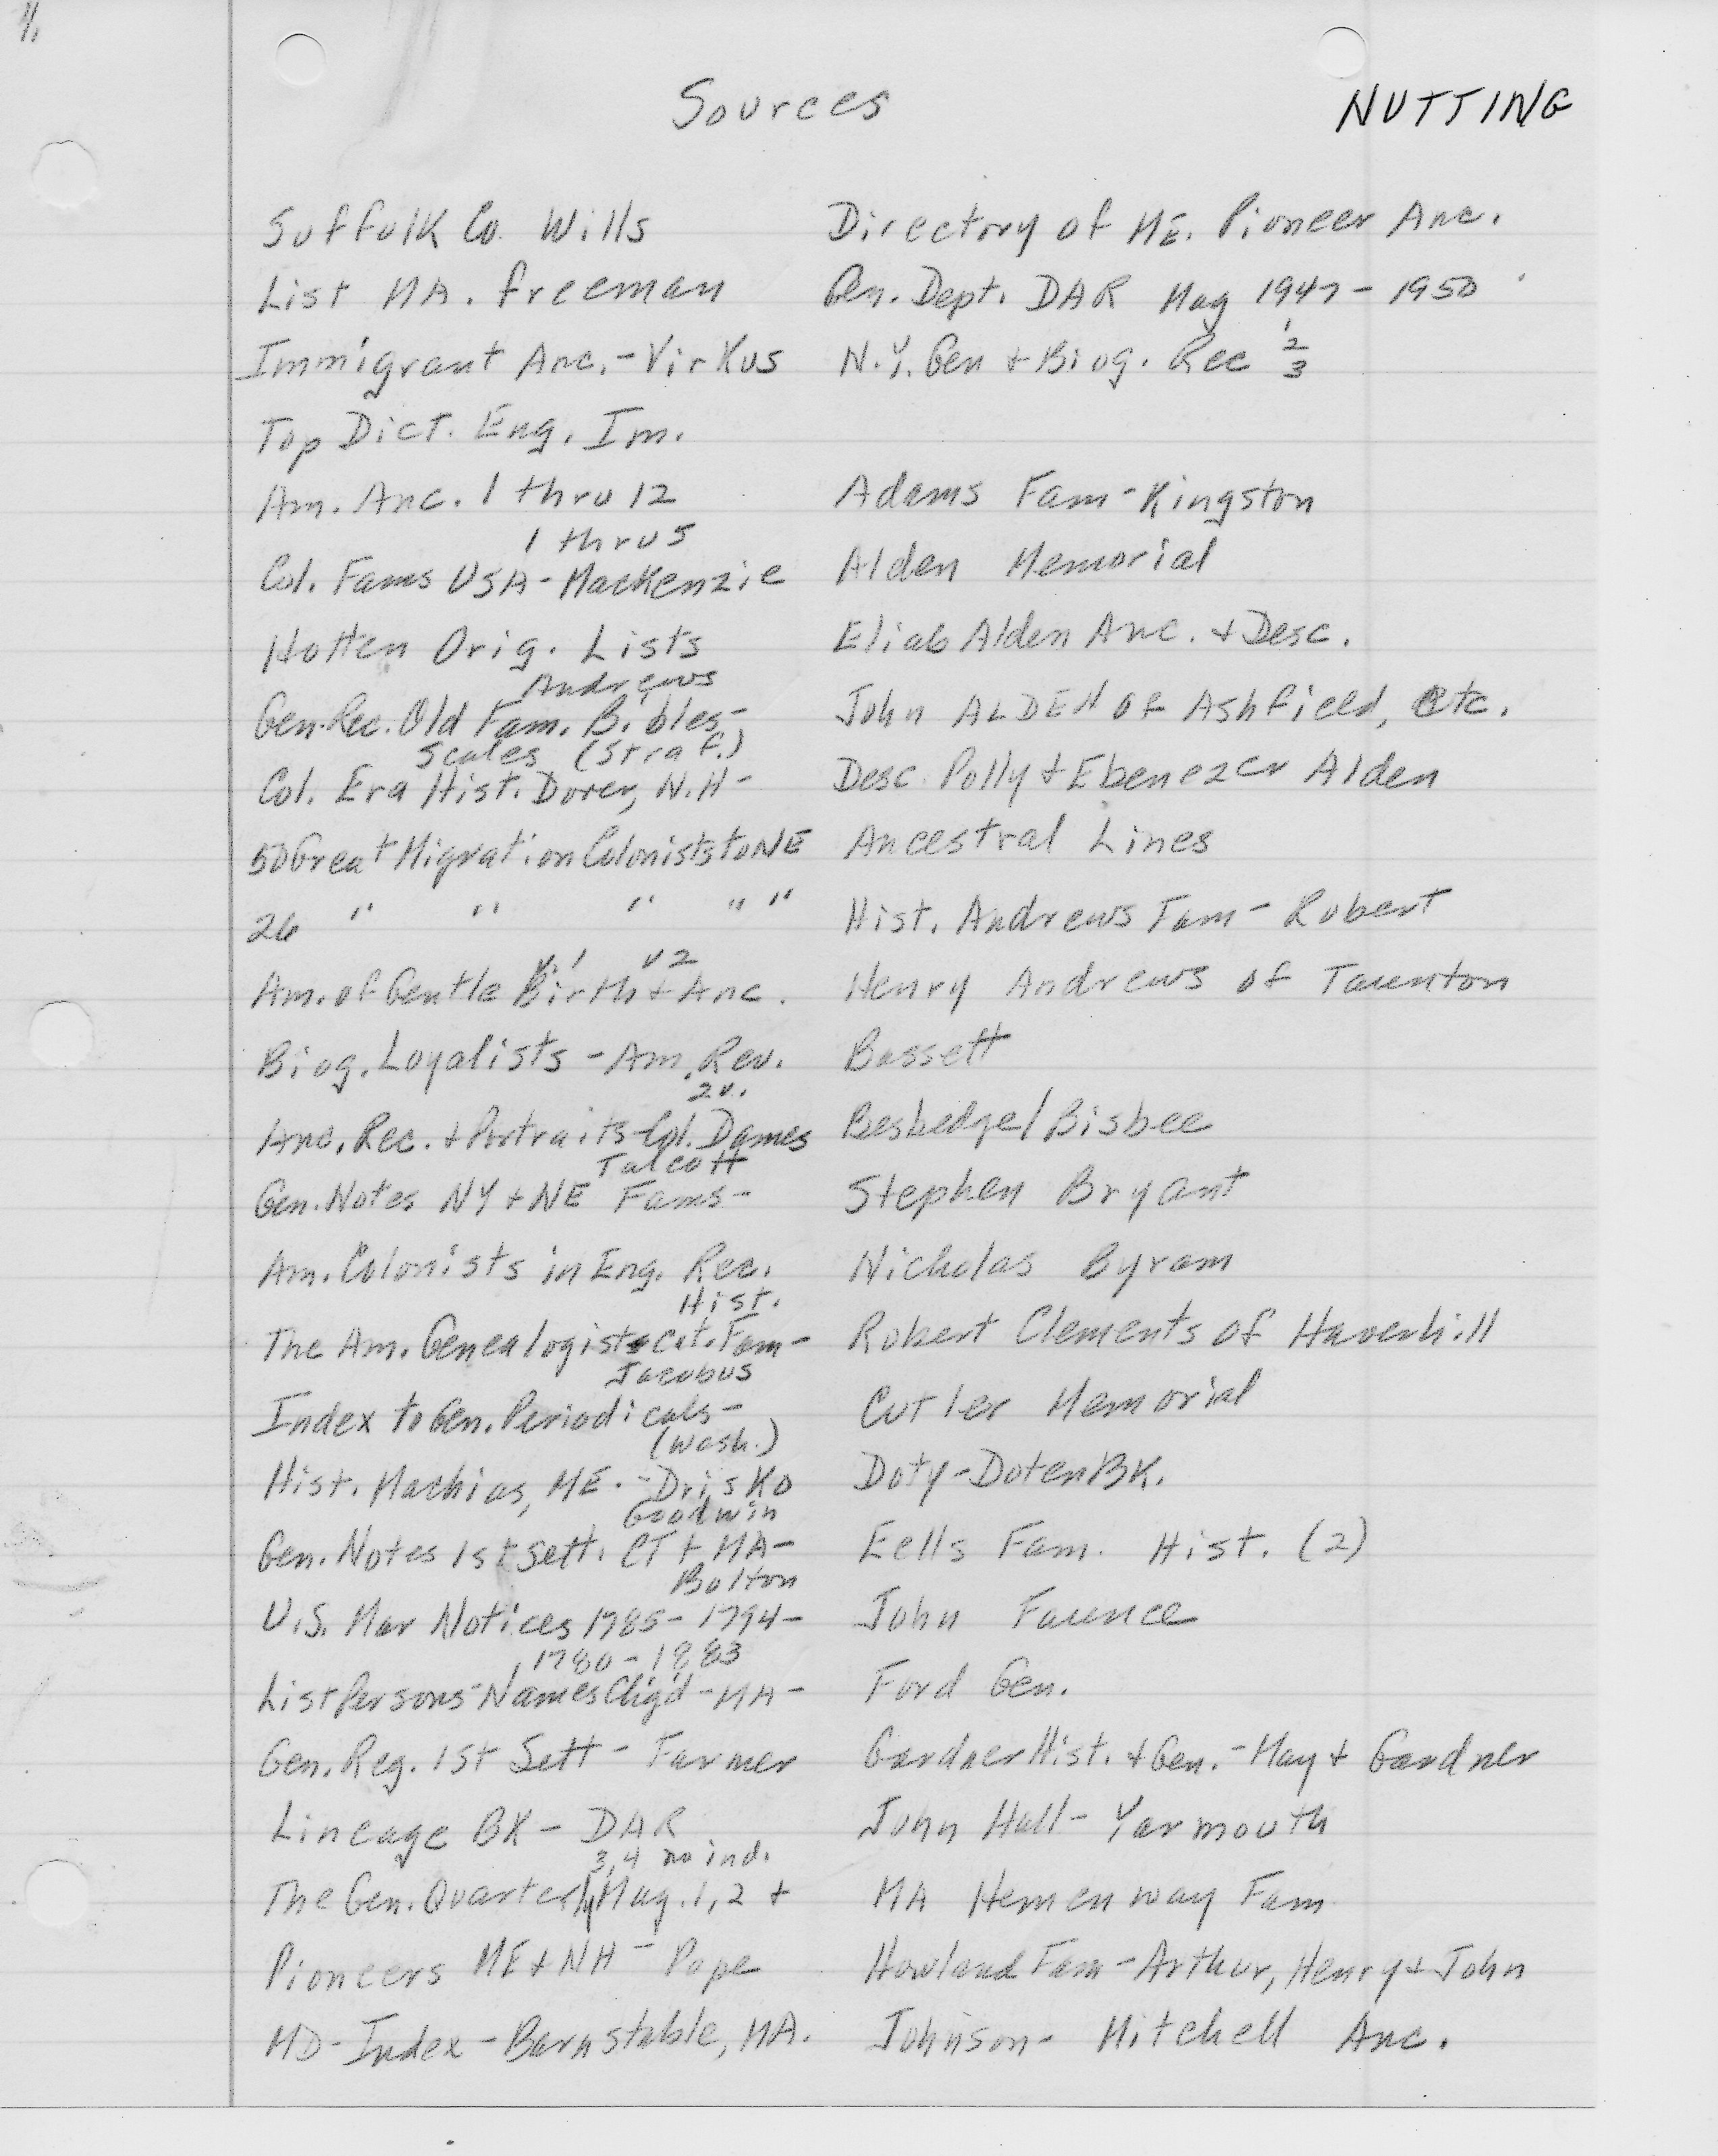 1/.
Sources
NUTTING
Suffolk Co. Wills
List MA. freeman
Immigrant Anc. - Virkus
Top Dict. Eng. Im.
Am. Anc. 1 thru 12
1 thru 5
Col. Fams USA - MacKenzie
Hotten Orig. Lists
Andrews
Gen. Rec. Old Fam. Bibles -
Scales (Straf.)
Col. Era Hist. Dover, N.H -
50 Great Migration Colonists to NE
26 " " " " "
v. 1 v 2
Am. of Gentle Birth + Anc.
Biog. Loyalists - Am. Rev.
2v.
Anc. Rec. + Portraits - Col. Dames
Talcott
Gen. Notes NY + NE Fams -
Am. Colonists in Eng. Rec.
Hist.
The Am. Genealogist + Cat. Fam -
Jacobus
Index to Gen. Periodicals -
(Wash.)
Hist. Machias, ME. - Drisko
Goodwin
Gen. Notes 1st Sett. CT + MA -
Bolton
U.S. Mar Notices 1785 - 1794 -
1780 - 1883
List Persons - Names Chg'd - MA -
Gen. Reg. 1st Sett - Farmer
Lineage BK - DAR
3, 4 no ind.
The Gen. Quarterly Mag. 1, 2 +
Pioneers ME + NH - Pope
MD - Index - Barnstable, MA.
Directory of ME. Pioneer Anc.
Gen. Dept. DAR Mag 1947 - 1950
1
N.Y. Gen + Biog. Rec 2
3
Adams Fam - Kingston
Alden Memorial
Eliab Alden Anc. + Desc.
John ALDEN of Ashfield, etc.
Desc. Polly + Ebenezer Alden
Ancestral Lines
Hist. Andrews Fam - Robert
Henry Andrews of Taunton
Bassett
Besbedge/Bisbee
Stephen Bryant
Nicholas Byram
Robert Clements of Haverhill
Cutler Memorial
Doty - Doten BK.
Eells Fam. Hist. (2)
John Faunce
Ford Gen.
Gardner Hist. + Gen. - May + Gardner
John Hall - Yarmouth
MA Hemenway Fam
Howland Fam - Arthur, Henry + John
Johnson - Mitchell Anc.